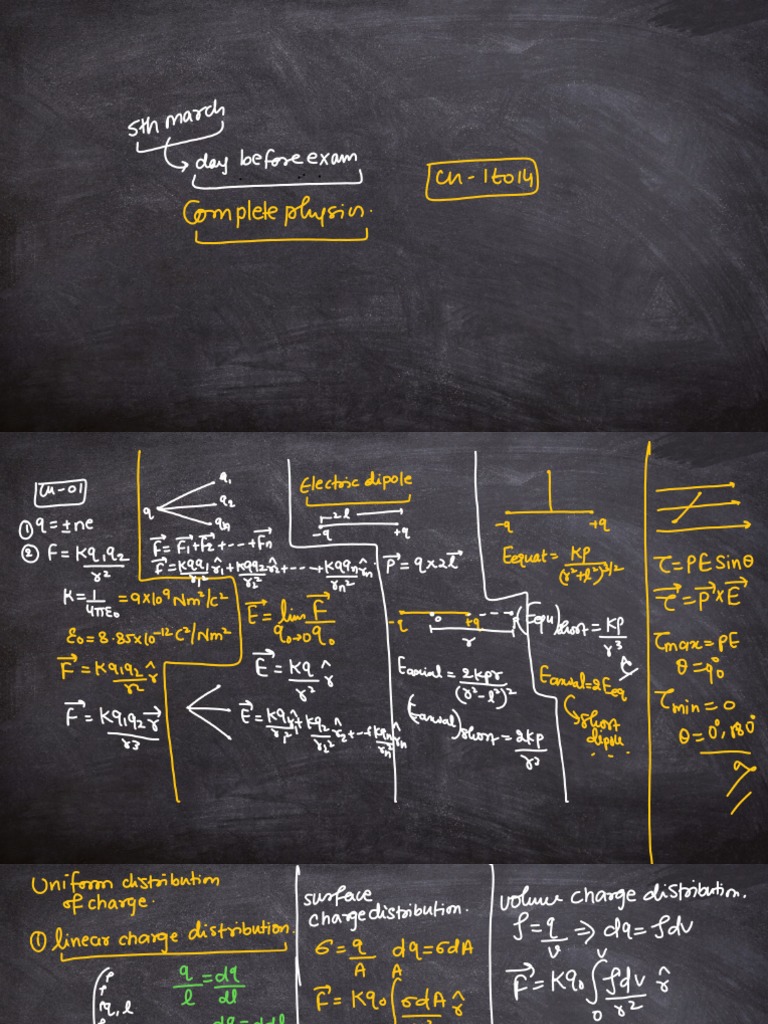 5th march
day before exam
Complete physics.
CH-1 to 14
CH-01
① q = ±ne
② F = Kq₁q₂/r²
K = 1/4πε₀ = 9×10⁹ Nm²/c²
ε₀ = 8.85×10⁻¹² C²/Nm²
F⃗ = Kq₁q₂/r² r̂
F⃗ = Kq₁q₂r⃗/r³
q q₁
q₂
qn
F⃗ = F⃗₁+F⃗₂+---+F⃗n
F⃗ = Kqq₁/r₁² r̂₁ + Kqq₂/r₂² r̂₂ + --- + Kqqn/rn² r̂n
E⃗ = lim q₀→0 F⃗/q₀
E⃗ = Kq/r² r̂
E⃗ = Kq₁/r₁² r̂₁ + Kq₂/r₂² r̂₂ + --- + Kqn/rn² r̂n
Electric dipole
2l
-q +q
P⃗ = q×2l⃗
-q o +q
r
Eaxial = 2kpr/(r²-l²)²
(Eaxial)short = 2kp/r³
-q +q
Eequat = KP/(r²+l²)^3/2
(Eequ)short = KP/r³
Eaxial = 2Eeq
short
dipole
τ = PE sinθ
τ⃗ = P⃗×E⃗
τmax = PE
θ = 90°
τmin = 0
θ = 0°, 180°
Uniform distribution
of charge.
① linear charge distribution.
q/l = dq/dl
q, l
surface
charge distribution.
σ = q/A dq = σdA
F⃗ = Kq₀∫ σdA r̂
volume charge distribution.
ρ = q/v ⇒ dq = ρdv
F⃗ = Kq₀ ∫₀ᵛ ρdv/r² r̂